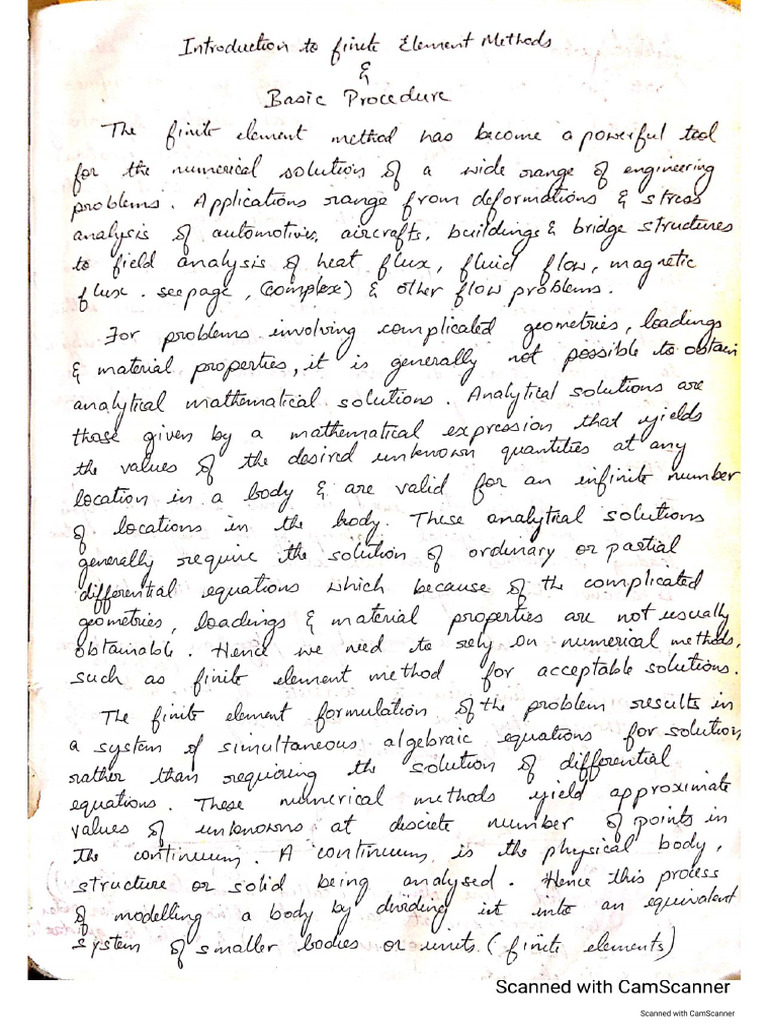 Introduction to finite Element Methods
&
Basic Procedure
The finite element method has become a powerful tool
for the numerical solution of a wide range of engineering
problems. Applications range from deformations & stress
analysis of automotives, aircrafts, buildings & bridge structures
to field analysis of heat flux, fluid flow, magnetic
flux. seepage, (complex) & other flow problems.
For problems involving complicated geometries, loadings
& material properties, it is generally not possible to obtain
analytical mathematical solutions. Analytical solutions are
those given by a mathematical expression that yields
the values of the desired unknown quantities at any
location in a body & are valid for an infinite number
of locations in the body. These analytical solutions
generally require the solution of ordinary or partial
differential equations which because of the complicated
geometries, loadings & material properties are not usually
obtainable. Hence we need to rely on numerical methods,
such as finite element method for acceptable solutions.
The finite element formulation of the problem results in
a system of simultaneous algebraic equations for solution
rather than requiring the solution of differential
equations. These numerical methods yield approximate
values of unknowns at discrete number of points in
the continuum. A continuum is the physical body,
structure or solid being analysed. Hence this process
of modelling a body by dividing it into an equivalent
system of smaller bodies or units (finite elements)
Scanned with CamScanner
Scanned with CamScanner